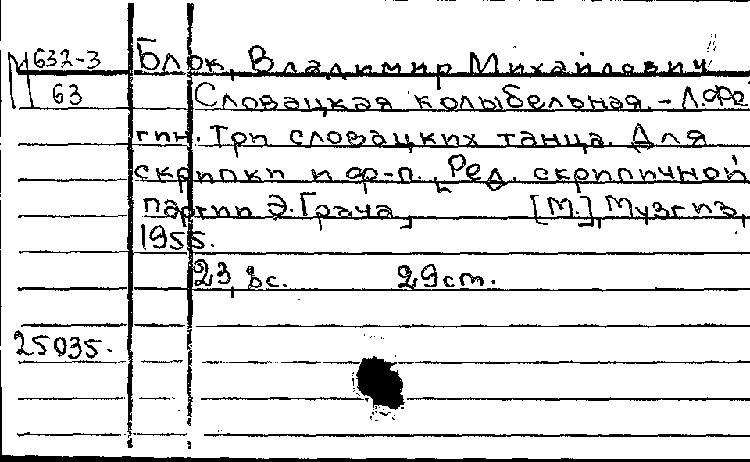 М 632-3 Блок, Владимир Михайлович
63 Словацкая колыбельная. - Л. Фе
гин. Три словацких танца. Для
скрипки и ф-п. [Ред. скрипичной
партии Э. Грача] [М.], Музгиз,
1955.
23, 8с. 29 ст.
25035.